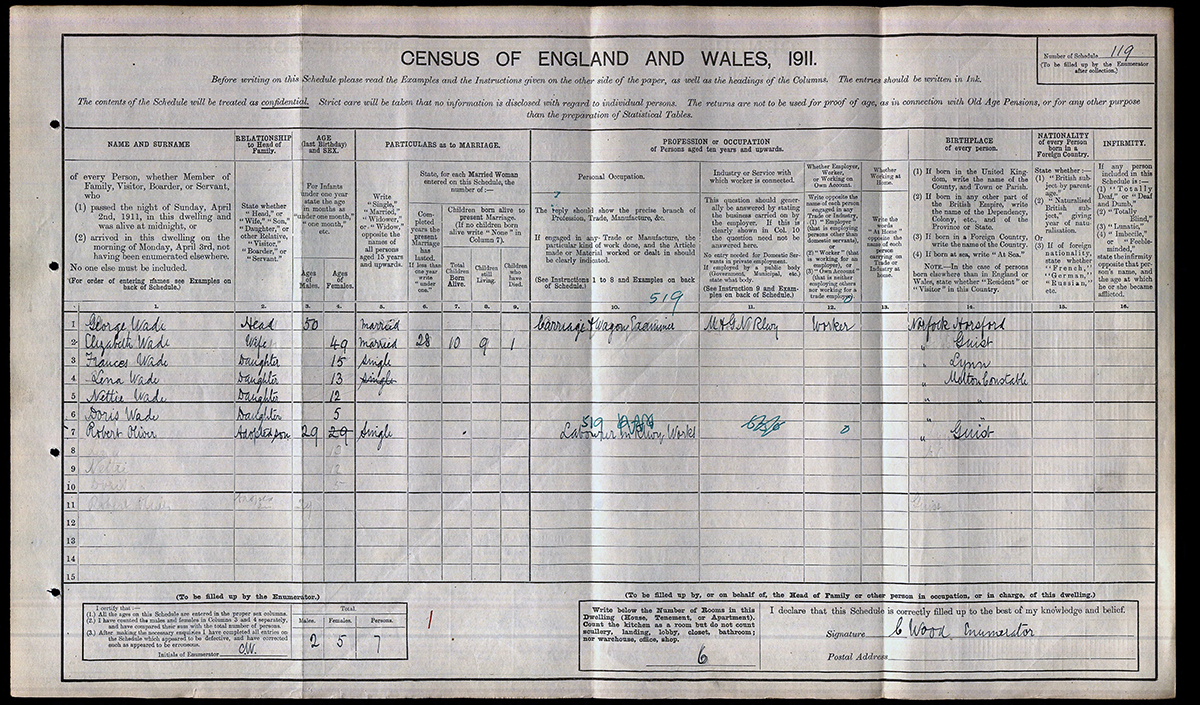 CENSUS OF ENGLAND AND WALES, 1911.
Number of Schedule 119
(To be filled up by the Enumerator after collection.)
Before writing on this Schedule please read the Examples and the Instructions given on the other side of the paper, as well as the headings of the Columns. The entries should be written in Ink.
The contents of the Schedule will be treated as confidential. Strict care will be taken that no information is disclosed with regard to individual persons. The returns are not to be used for proof of age, as in connection with Old Age Pensions, or for any other purpose
than the preparation of Statistical Tables.
NAME AND SURNAME
of every Person, whether Member of
Family, Visitor, Boarder, or Servant,
who
(1) passed the night of Sunday, April
2nd, 1911, in this dwelling and
was alive at midnight, or
(2) arrived in this dwelling on the
morning of Monday, April 3rd, not
having been enumerated elsewhere.
No one else must be included.
(For order of entering names see Examples on
back of Schedule.)
RELATIONSHIP
to Head of
Family.
State whether
"Head," or
"Wife," "Son,"
"Daughter," or
other Relative,
"Visitor,"
"Boarder," or
"Servant."
AGE
(last Birthday)
and SEX.
For Infants
under one year
state the age
in months as
"under one month,"
"one month,"
etc.
Ages of Males.
Ages of Females.
PARTICULARS as to MARRIAGE.
Write
"Single,"
"Married,"
"Widower,"
or "Widow,"
opposite the
names of
all persons
aged 15 years
and upwards.
State, for each Married Woman
entered on this Schedule, the
number of:—
Completed years the present Marriage has lasted.
If less than one year write "under one."
Children born alive to
present Marriage.
(If no children born
alive write "None" in
Column 7).
Total Children Born Alive.
Children still Living.
Children who have Died.
PROFESSION or OCCUPATION
of Persons aged ten years and upwards.
Personal Occupation.
The reply should show the precise branch of
Profession, Trade, Manufacture, &c.
If engaged in any Trade or Manufacture, the
particular kind of work done, and the Article
made or Material worked or dealt in should
be clearly indicated.
(See Instructions 1 to 8 and Examples on back
of Schedule.)
519
Industry or Service
with which worker is connected.
This question should generally be answered by stating
the business carried on by
the employer. If this is
clearly shown in Col. 10
the question need not be
answered here.
No entry needed for Domestic Servants in private employment.
If employed by a public body
(Government, Municipal, etc.)
state what body.
(See Instruction 9 and Examples on back of Schedule.)
Whether Employer,
Worker,
or Working on
Own Account.
Write opposite the
name of each person
engaged in any
Trade or Industry,
(1) "Employer"
(that is employing
persons other than
domestic servants),
or
(2) "Worker" (that
is working for an
employer), or
(3) "Own Account"
(that is neither
employing others
nor working for a
trade employer).
Whether
Working at
Home.
Write the
words
"At Home"
opposite the
name of each
person
carrying on
Trade or
Industry at
home.
BIRTHPLACE
of every person.
(1) If born in the United Kingdom, write the name of the
County, and Town or Parish.
(2) If born in any other part of
the British Empire, write
the name of the Dependency,
Colony, etc., and of the
Province or State.
(3) If born in a Foreign Country,
write the name of the Country.
(4) If born at sea, write "At Sea."
NOTE.—In the case of persons
born elsewhere than in England or
Wales, state whether "Resident" or
"Visitor" in this Country.
NATIONALITY
of every Person
born in a
Foreign Country.
State whether:—
(1) "British subject by parentage."
(2) "Naturalised
British subject," giving
year of naturalisation.
Or
(3) If of foreign
nationality,
state whether
"French,"
"German,"
"Russian,"
etc.
INFIRMITY.
If any person
included in this
Schedule is:—
(1) "Totally
Deaf," or "Deaf
and Dumb,"
(2) "Totally
Blind,"
(3) "Lunatic,"
(4) "Imbecile,"
or "Feeble-minded,"
state the infirmity
opposite that person's name, and
the age at which
he or she became
afflicted.
1. 2. 3. 4. 5. 6. 7. 8. 9. 10. 11. 12. 13. 14. 15. 16.
1 George Wade Head 50 Married Carriage & Wagon Examiner M & G N Rlwy Worker Norfolk Horsford
2 Elizabeth Wade Wife 49 Married 28 10 9 1 " Guist
3 Frances Wade Daughter 15 Single " Lynn
4 Lena Wade Daughter 13 Single " Melton Constable
5 Nettie Wade Daughter 12 " "
6 Doris Wade Daughter 5 " "
7 Robert Oliver Adopted son 29 29 Single 519 Labourer in Rlwy Works 0 " Guist
8
9 Nettie 12
10 Doris 5
11 29 Guist
12
13
14
15
(To be filled up by the Enumerator.)
I certify that:—
(1.) All the ages on this Schedule are entered in the proper sex columns.
(2.) I have counted the males and females in Columns 3 and 4 separately,
and have compared their sum with the total number of persons.
(3.) After making the necessary enquiries I have completed all entries on
the Schedule which appeared to be defective, and have corrected
such as appeared to be erroneous.
Initials of Enumerator CW.
Total.
Males. Females. Persons.
2 5 7
1
(To be filled up by, or on behalf of, the Head of Family or other person in occupation, or in charge, of this dwelling.)
Write below the Number of Rooms in this
Dwelling (House, Tenement, or Apartment).
Count the kitchen as a room but do not count
scullery, landing, lobby, closet, bathroom;
nor warehouse, office, shop.
6
I declare that this Schedule is correctly filled up to the best of my knowledge and belief.
Signature C Wood Enumerator
Postal Address